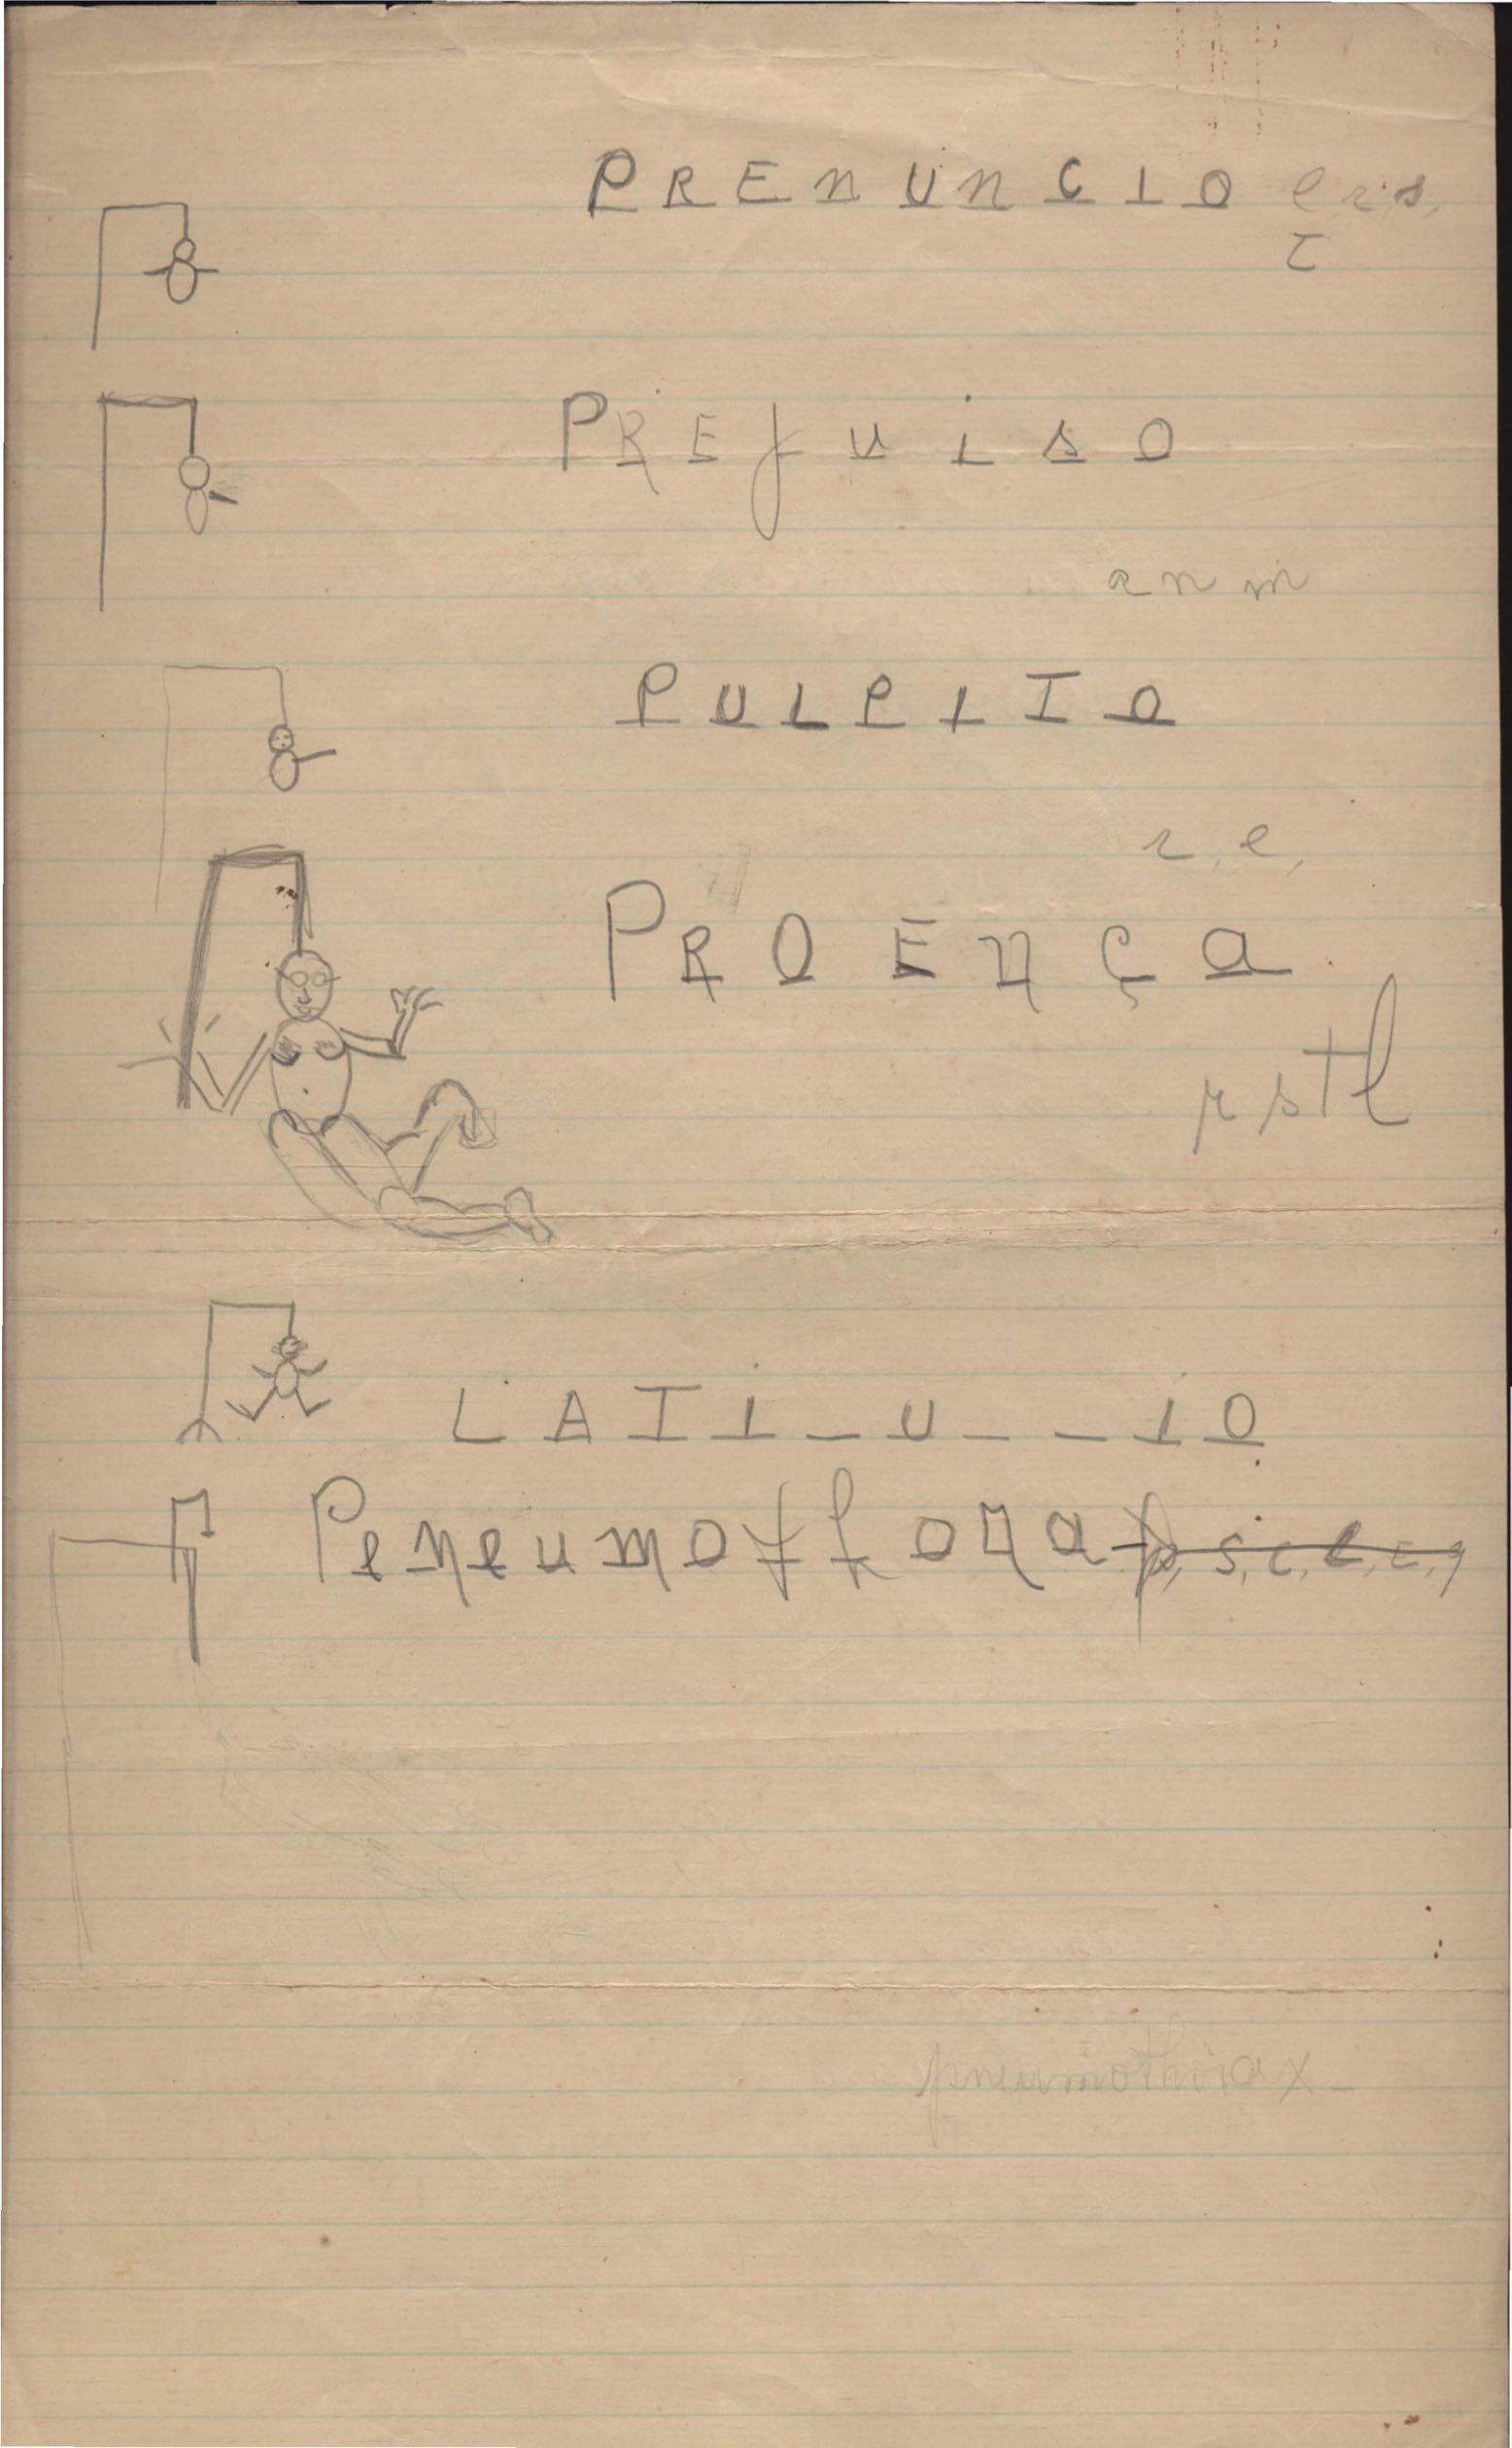 PRENUNCIO e, r, s,
T
PREjuiso
a n m
PULPITO
r, e,
PROENÇa
r s t l
LATI_U__IO
PeneumotLora p, s, c, l, c, q
pneumothorax